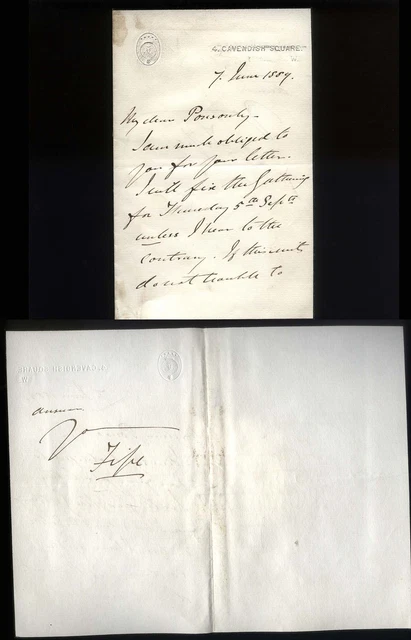 4, CAVENDISH SQUARE.
W.
7. June 1889.
My dear Ponsonby -
I am much obliged to
you for your letter.
I will fix the Gathering
for Thursday 5th Septr
unless I hear to the
contrary. If this suits
do not trouble to
answer
Yrs
Fife